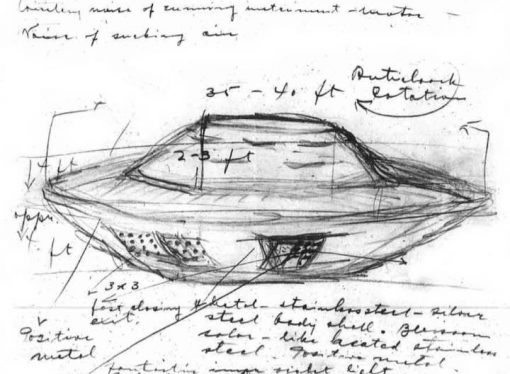 noise of running instrument - motor -
Noise of sucking air
35 - 40 ft
Anticlock
rotation
2-3 ft
4 ft
appr.
4 ft
3 x 3
fast closing
exit.
Metal - stainless steel - silver
steel body shell.
color - like heated stainless
steel. positive metal.
Positive
metal
right light